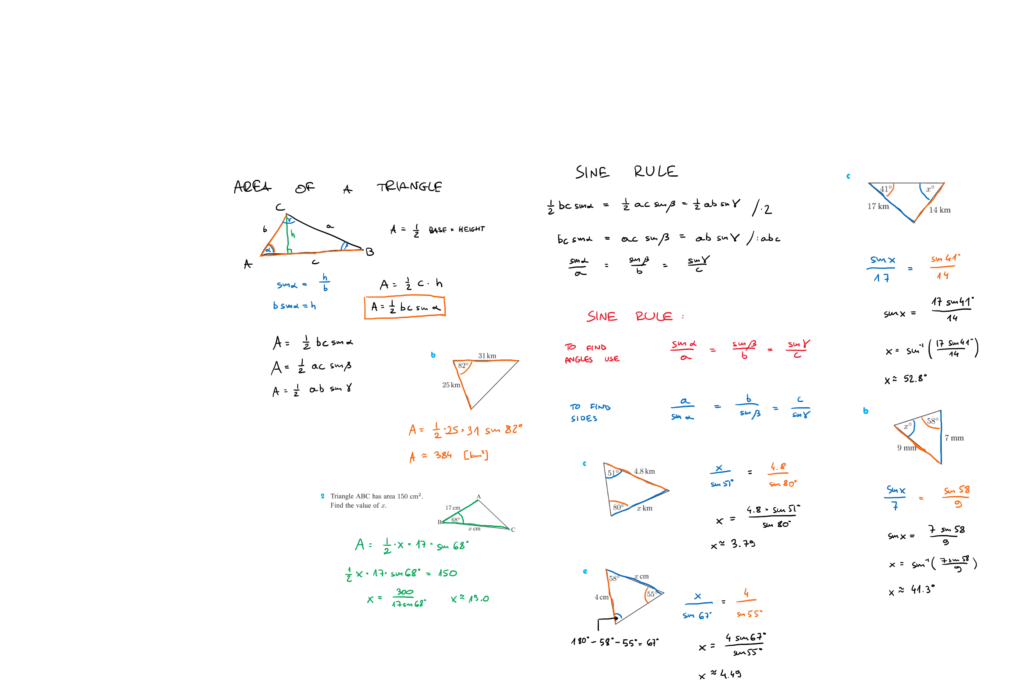 AREA OF A TRIANGLE
C
b
a
γ
h
α
β
A
c
B
A = 1/2 BASE × HEIGHT
sinα = h/b
b sinα = h
A = 1/2 c · h
A = 1/2 bc sinα
A = 1/2 bc sinα
A = 1/2 ac sinβ
A = 1/2 ab sinγ
b
31 km
82°
25 km
A = 1/2 · 25 · 31 sin 82°
A ≈ 384 [km²]
2 Triangle ABC has area 150 cm².
Find the value of x.
A
17 cm
B
68°
x cm
C
A = 1/2 · x · 17 · sin 68°
1/2 x · 17 · sin 68° = 150
x = 300/17 sin 68° x ≈ 19.0
SINE RULE
1/2 bc sinα = 1/2 ac sinβ = 1/2 ab sinγ /·2
bc sinα = ac sinβ = ab sinγ /:abc
sinα/a = sinβ/b = sinγ/c
SINE RULE:
TO FIND
ANGLES USE
sinα/a = sinβ/b = sinγ/c
TO FIND
SIDES
a/sinα = b/sinβ = c/sinγ
c
51°
4.8 km
80°
x km
x/sin 51° = 4.8/sin 80°
x = 4.8 · sin 51°/sin 80°
x ≈ 3.79
e
58°
x cm
4 cm
55°
180° - 58° - 55° = 67°
x/sin 67° = 4/sin 55°
x = 4 sin 67°/sin 55°
x ≈ 4.49
c
41°
x°
17 km
14 km
sin x/17 = sin 41°/14
sin x = 17 sin 41°/14
x = sin⁻¹(17 sin 41°/14)
x ≈ 52.8°
b
x°
58°
7 mm
9 mm
sin x/7 = sin 58/9
sin x = 7 sin 58/9
x = sin⁻¹(7 sin 58/9)
x ≈ 41.3°